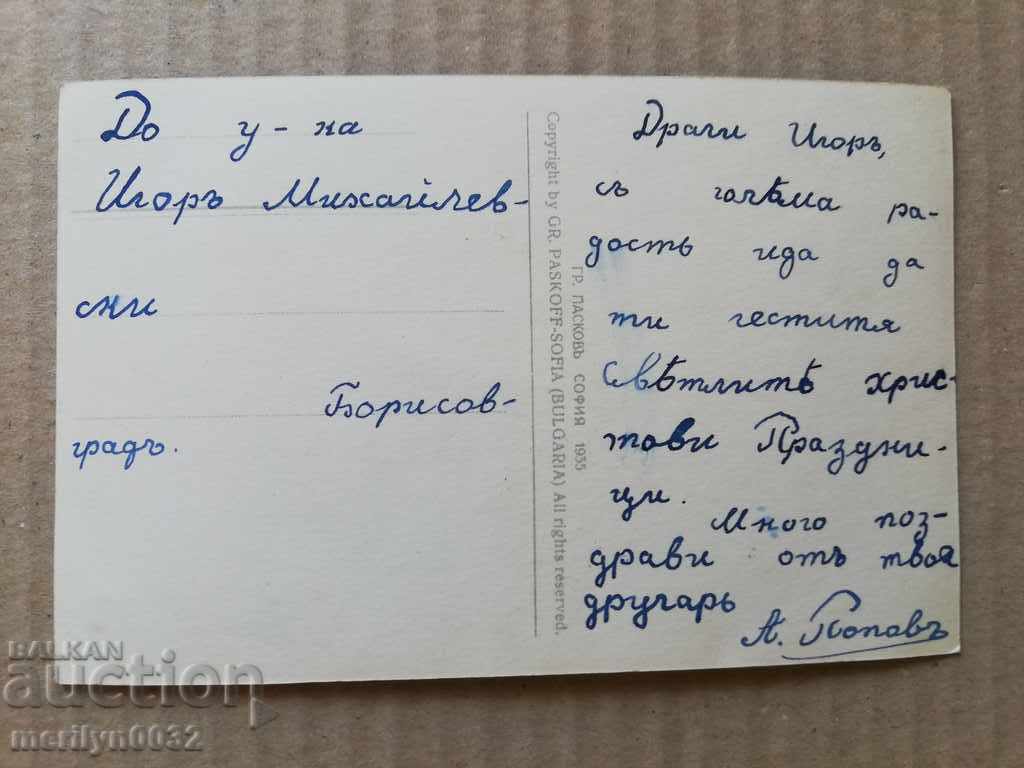 До у-ка
Игоръ Михайлев-
ски
Борисов-
градъ.
ГР. ПАСКОВЪ СОФИЯ 1935
Copyright by GR. PASKOFF-SOFIA (BULGARIA) All rights reserved.
Драги Игоръ,
съ голѣма ра-
дость ида да
ти честитя
Свѣтлитѣ Хрис-
тови Праздни-
ци.
Много поз-
драви отъ твоя
другарь
А. Поповъ
BALKAN
auction
merilyn0032